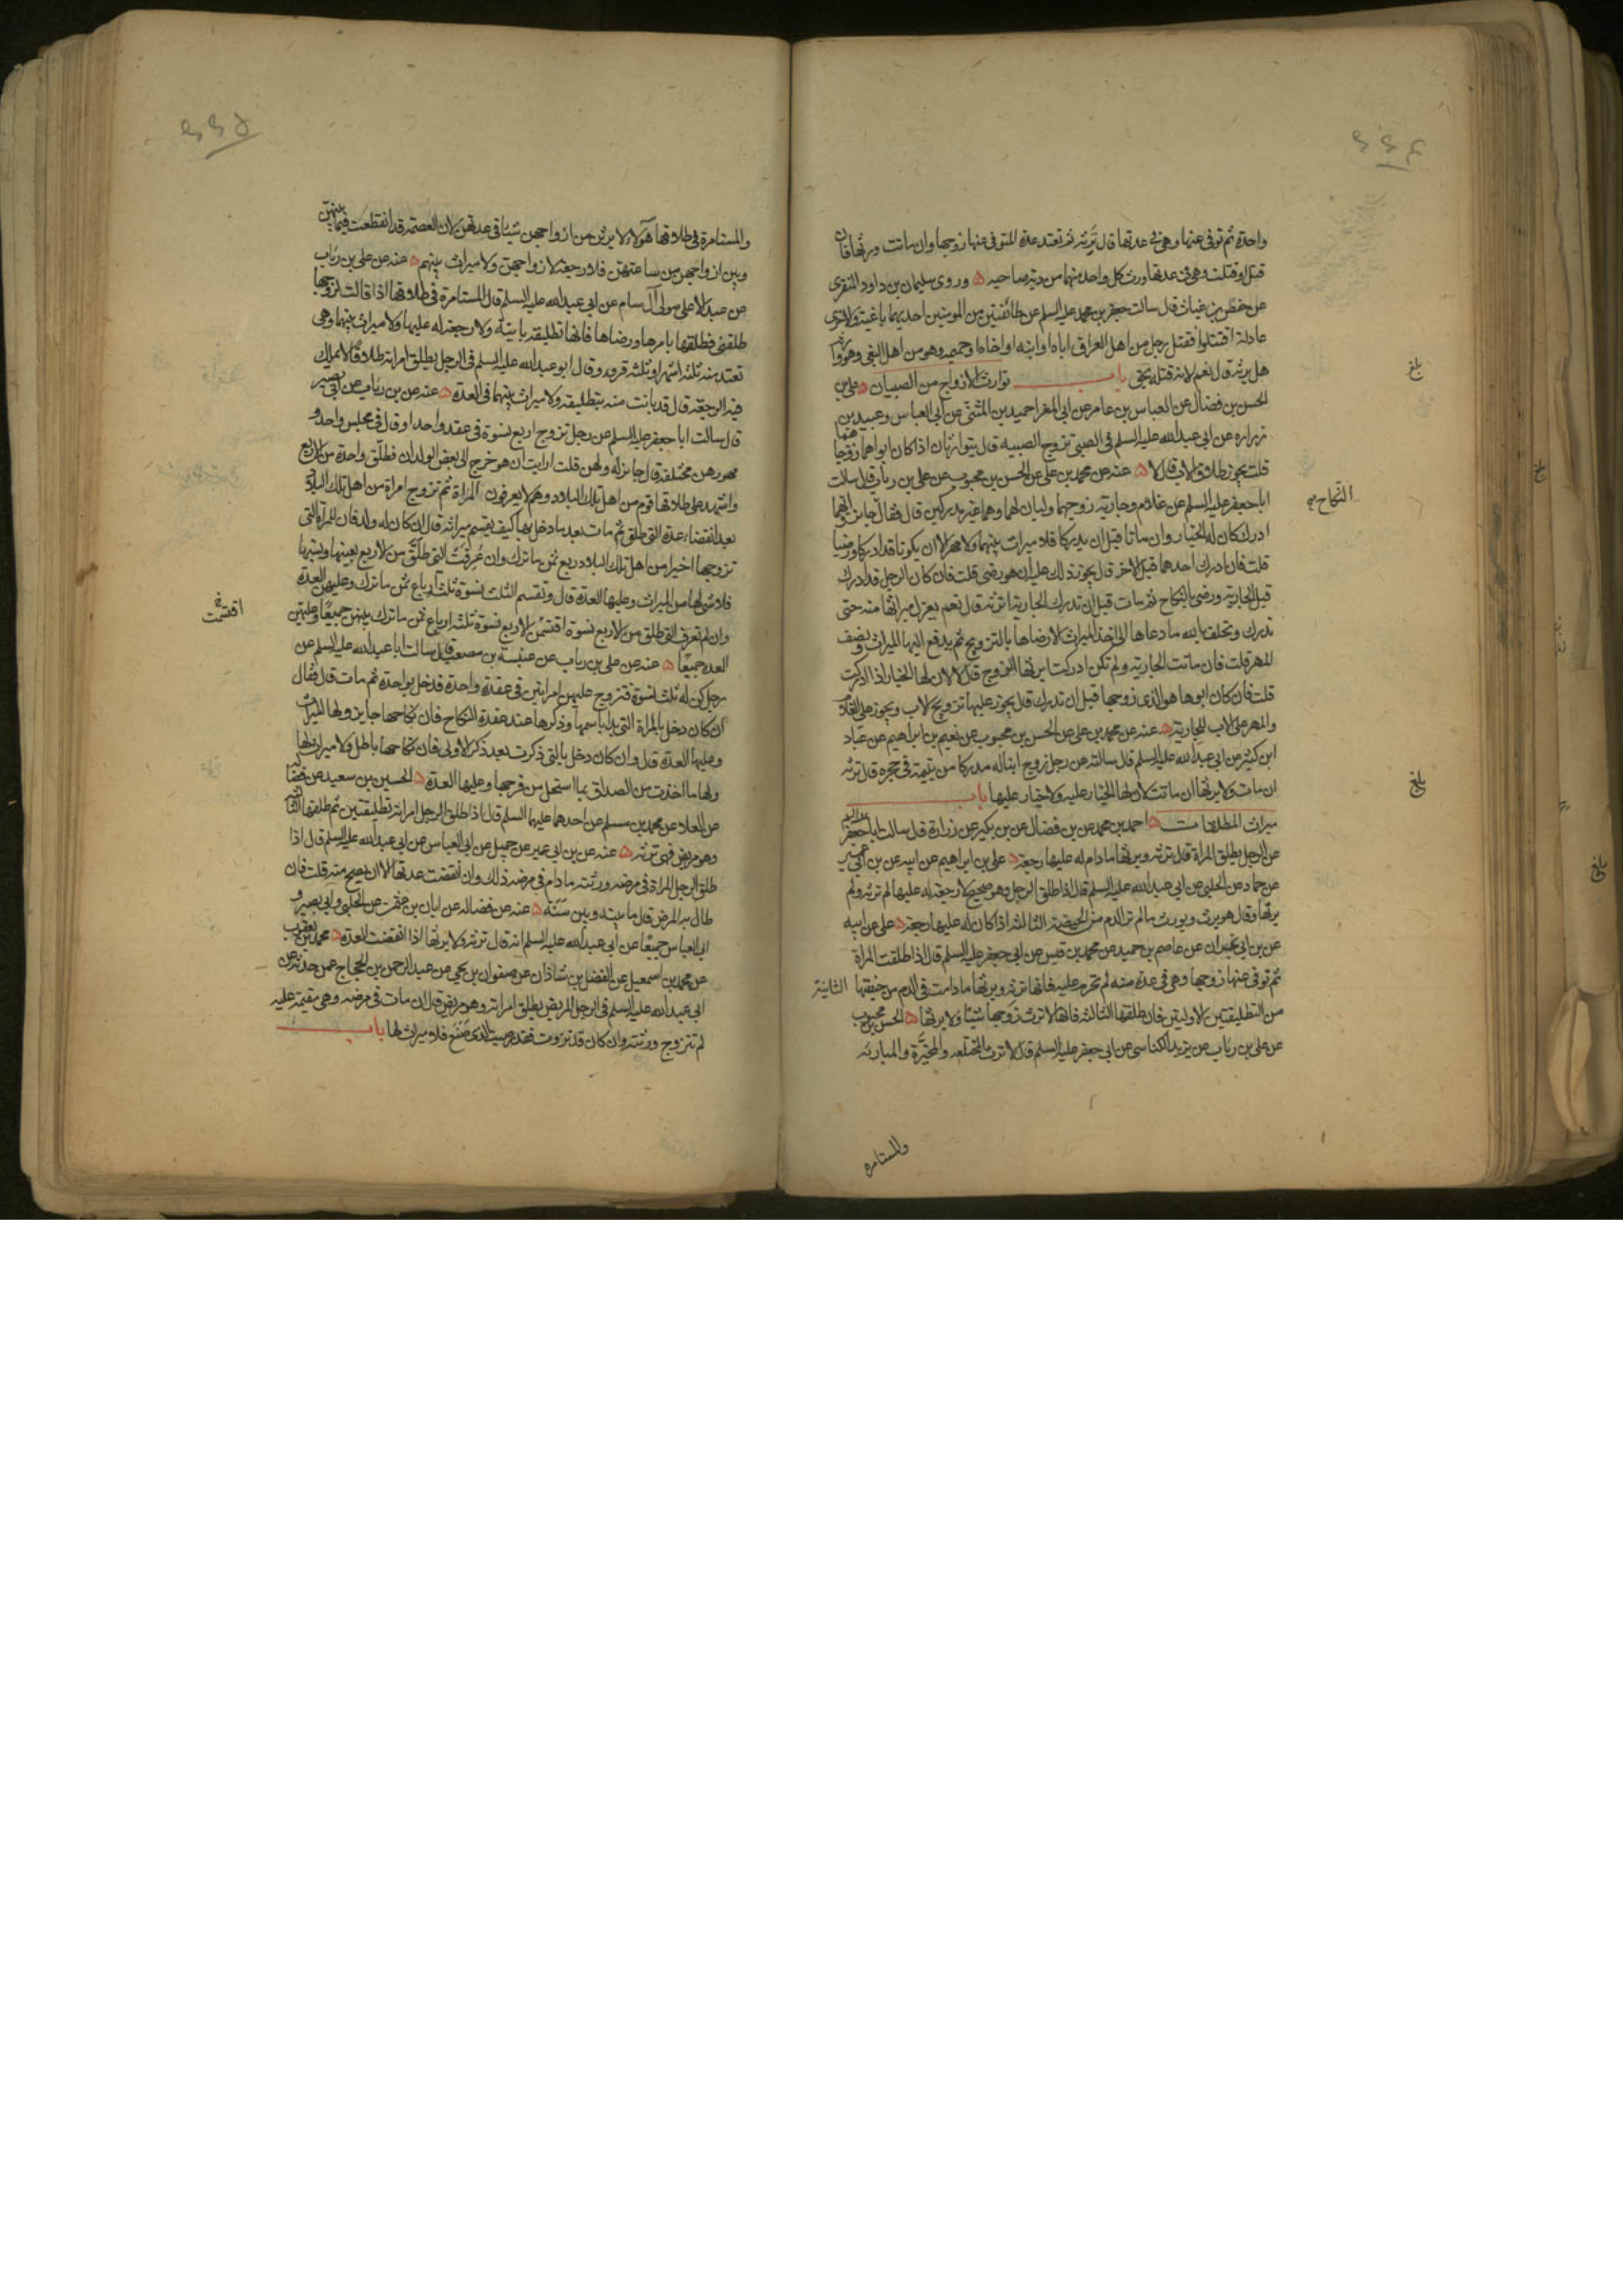 واحدة ثم توفى عنها وهي في عدتها قال ترثه ثم تعتد عدة المتوفى عنها زوجها وان ماتت ورثها فان
قتل او قتلت وهى فى عدتها ورث كل واحد منهما من دية صاحبه ه وروى سليمان بن داود المنقرى
عن حفص بن غياث قال سالت جعفر بن محمد عليه السلم عن طائفتين من المومنين احديهما باغية والاخرى
عادلة اقتتلوا فقتل رجل من اهل العراق اباه او ابنه او اخاه او حميمه وهو من اهل البغى وهو وارثه
هل يرثه قال نعم لانه قتله بحق باب توارث الازواج من الصبيان ه على بن
الحسن بن فضال عن العباس بن عامر عن ابى المغرا حميد بن المثنى عن ابى العباس وعبيد بن
زراره عن ابى عبد الله عليه السلم فى الصبى تزوج الصبيه قال يتوارثان اذا كان ابواهما زوجاهما
قلت يجوز طلاق الاب قال لا ه عنه عن محمد بن على عن الحسن بن محبوب عن على بن رياب قال سالت
ابا جعفر عليه السلم عن غلام وجارية زوجهما وليان لهما وهما غير مدركين قال فقال جايز وايهما
النكاح
ادرك كان له الخيار وان ماتا قبل ان يدركا فلا ميراث بينهما ولا مهر الا ان يكونا قد ادركا ورضيا
قلت فان ادرك احدهما قبل الاخر قال يجوز ذلك عليه ان هو رضى قلت فان كان الرجل قد ادرك
قبل الجارية ورضى بالنكاح ثم مات قبل ان تدرك الجارية اترثه قال نعم يعزل ميراثها منه حتى
تدرك وتحلف بالله ما دعاها الى اخذ الميراث الا رضاها بالتزويج ثم يدفع اليها الميراث ونصف
المهر قلت فان ماتت الجارية ولم تكن ادركت ايرثها الزوج قال لا لان لها الخيار اذا ادركت
قلت فان كان ابوها هو الذى زوجها قبل ان تدرك قال يجوز عليها تزويج الاب ويجوز على الغلام
والمهر على الاب للجارية ه عنه عن محمد بن على عن الحسن بن محبوب عن نعيم بن ابراهيم عن عباد
ابن كثير عن ابى عبد الله عليه السلم قال سالته عن رجل زوج ابنا له مدركا من يتيمة فى حجره قال ترثه
ان مات ولا يرثها ان ماتت لان لها الخيار عليه ولا خيار عليها باب
ميراث المطلقات ه احمد بن محمد عن بن فضال عن بن بكير عن زرارة قال سالت ابا جعفر عليه السلم
عن الرجل يطلق المراة قال ترثه ويرثها ما دام له عليها رجعة ه على بن ابراهيم عن ابيه عن بن ابى عمير
عن حماد عن الحلبى عن ابى عبد الله عليه السلم قال اذا طلق الرجل وهو صحيح لا رجعة له عليها لم ترثه ولم
يرثها وقال هو يرث ويورث ما لم تر الدم من الحيضة الثالثه اذا كان له عليها رجعة ه على عن ابيه
عن بن ابى نجران عن عاصم بن حميد عن محمد بن قيس عن ابى جعفر عليه السلم قال اذا طلقت المراة
ثم توفى عنها زوجها وهى فى عدة منه لم تحرم عليه فانها ترثه ويرثها ما دامت فى الدم من حيضتها الثانية
من التطليقتين الاوليتين فان طلقها الثالثه فانها لا ترث زوجها شيئا ولا يرثها ه الحسن بن محبوب
عن على بن رئاب عن يزيد الكناسى عن ابى جعفر عليه السلم قال لا ترث المختلعه والمخيرة والمباريه
والمستامره
والمستامرة فى طلاقها هولاء لا يرثن من ازواجهن شيئا فى عدتهن لان العصمة قد انقطعت فيما بينهن
وبين ازواجهن من ساعتهن فلا رجعة لازواجهن ولا ميراث بينهم ه عنه عن على بن رئاب
عن عبد الاعلى مولى آل سام عن ابى عبد الله عليه السلم قال المستامرة فى طلاقها اذا قالت لزوجها
طلقنى فطلقها بامرها ورضاها فانها تطليقه باينة ولا رجعة له عليها ولا ميراث بينهما وهى
تعتد منه ثلثة اشهر او ثلثة قروء وقال ابو عبد الله عليه السلم فى الرجل يطلق امراته طلاقا لا يملك
فيه الرجعة قال قد بانت منه بتطليقه ولا ميراث بينهما فى العدة ه عنه عن بن رياب عن ابى بصير
قال سالت ابا جعفر عليه السلم عن رجل تزوج اربع نسوة فى عقد واحد او قال فى مجلس واحد و
مهورهن مختلفه قال جايز له ولهن قلت ارايت ان هو خرج الى بعض البلدان فطلق واحدة من الاربع
واشهد على طلاقها قوم من اهل تلك البلاد وهم لا يعرفون المراة ثم تزوج امراة من اهل تلك البلاد
بعد انقضاء عدة التى طلق ثم مات بعد ما دخل بها كيف يقسم ميراثه قال ان كان له ولد فان للمرآة التى
تزوجها اخيرا من اهل تلك البلاد ربع ثمن ما ترك وان عرفت التى طلق من الاربع بعينها ونسبها
فلا شى لها من الميراث وعليها العدة قال وتقسم الثلث نسوة ثلثة ارباع ثمن ما ترك وعليهن العدة
وان لم تعرف التى طلق من الاربع نسوة اقتسمن الاربع نسوة ثلثه ارباع ثمن ما ترك بينهن جميعا وعليهن
اقتسمت
العدة جميعا ه عنه عن على بن رياب عن عنبسة بن مصعب قال سالت ابا عبد الله عليه السلم عن
رجل كن له ثلث نسوة فتزوج عليهن امراتين فى عقدة واحدة فدخل بواحدة ثم مات قال فقال
ان كان دخل بالمراة التى بدا باسمها وذكرها عند عقدة النكاح فان نكاحها جايز ولها الميراث
وعليها العدة قال وان كان دخل بالتى ذكرت بعد ذكر الاولى فان نكاحها باطل ولا ميراث لها
ولها ما اخذت من الصداق بما استحل من فرجها وعليها العدة ه الحسين بن سعيد عن فضالة
عن العلا عن محمد بن مسلم عن احدهما عليهما السلم قال اذا طلق الرجل امراته تطليقتين ثم طلقها الثالثة
وهو مريض فهى ترثه ه عنه عن بن ابى عمير عن جميل عن ابى العباس عن ابى عبد الله عليه السلم قال اذا
طلق الرجل المراة فى مرضه ورثته ما دام فى مرضه ذلك وان انقضت عدتها الا ان يصح منه قلت فان
طال به المرض قال ما بينه وبين سنة ه عنه عن فضاله عن ابان بن عثمن عن الحلبى وابى بصير و
ابى العباس جميعا عن ابى عبد الله عليه السلم انه قال ترثه ولا يرثها اذا انقضت العدة ه محمد بن يعقوب
عن محمد بن اسمعيل عن الفضل بن شاذان عن صفوان بن يحيى عن عبد الرحمن بن الحجاج عمن حدثه عن
ابى عبد الله عليه السلم فى الرجل المريض يطلق امراته وهو مريض قال ان مات فى مرضه وهى مقيمة عليه
لم تتزوج ورثته وان كان قد تزوجت فقد رضيت الذى صنع فلا ميراث لها باب